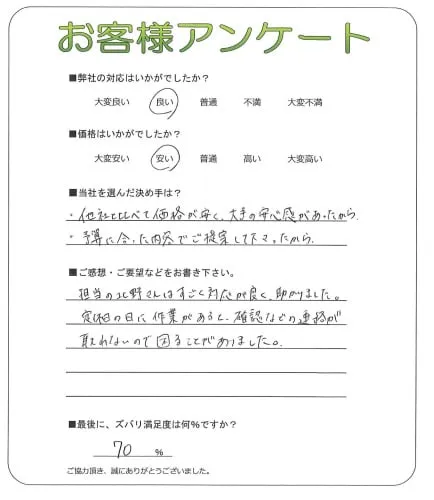 お客様アンケート
■弊社の対応はいかがでしたか？
大変良い 良い 普通 不満 大変不満
■価格はいかがでしたか？
大変安い 安い 普通 高い 大変高い
■当社を選んだ決め手は？
・他社と比べて価格が安く、大手の安心感があったから.
・予算に合った内容でご提案して下さったから.
■ご感想・ご要望などをお書き下さい。
担当の北野さんはすごく対応が良く、助かりました。
定休の日に作業があると、確認などの連絡が
取れないので困ることがありました。
■最後に、ズバリ満足度は何%ですか？
70 %
ご協力頂き、誠にありがとうございました。